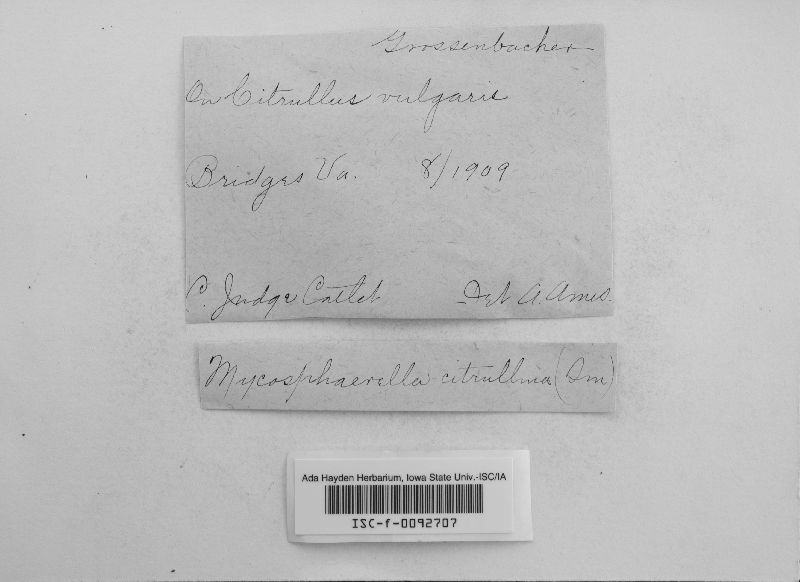 Grossenbacher
On Citrullus vulgaris
Bridges Va. 8/1909
C. Judge Catlet Det A. Ames.
Mycosphaerella citrullina (Sm)
Ada Hayden Herbarium, Iowa State Univ.-ISC/IA
ISC-f-0092707